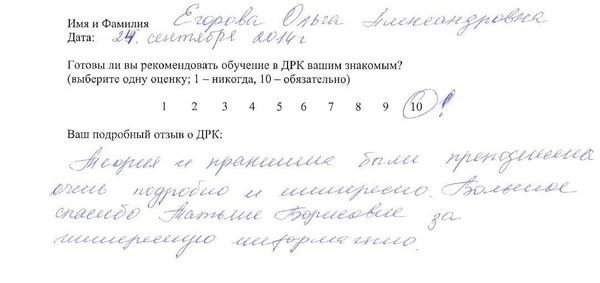 Имя и Фамилия Егорова Ольга Александровна
Дата: 24. сентября 2014г
Готовы ли вы рекомендовать обучение в ДРК вашим знакомым?
(выберите одну оценку; 1 – никогда, 10 – обязательно)
1 2 3 4 5 6 7 8 9 10 !
Ваш подробный отзыв о ДРК:
Теория и практика были преподнесена
очень подробно и интересно. Большое
спасибо Татьяне Борисовне за
интересную информацию.